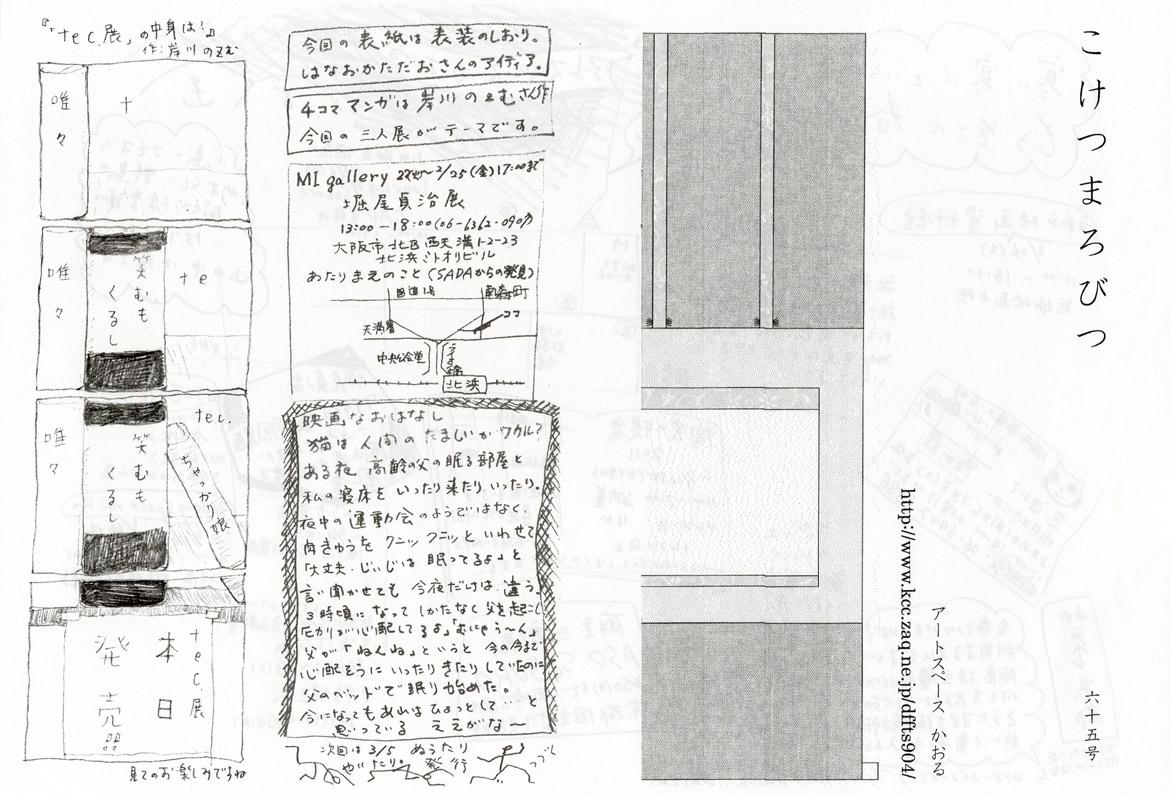 こけつまろびつ
六十五号
アートスペース かおる
http://www.kcc.zaq.ne.jp/dffts904/
今回の表紙は表装のしおり。
はなおかただおさんのアイディア。
4コママンガは岸川のぞむさん作
今回の三人展がテーマです。
MI gallery
2/25(金)17:00まで
堀尾貞治展
13:00-18:00(06-6362-0907)
大阪市北区西天満1-2-23
北浜ミトオリビル
あたりまえのこと(SADAからの発見)
国道1号
南森町
ココ
天満署
中央公会堂
北浜
映画なおはなし
猫は人間のたましいがワカル?
ある夜 高齢の父の眠る部屋と
私の寝床をいったり来たりいったり。
夜中の運動会のようではなく、
肉きゅうを クニッ クニッと いわせて
「大丈夫、じいじは眠ってるよ」と
言い聞かせても 今夜だけは違う。
3時頃になって しかたなく 父を起こし
心配してるよ」「むにゃう〜ん」
父が「ねんね」というと 今の今まで
心配そうに いったりきたり していたのに
父のベットで眠り始めた。
今になってもあれはひょっとして…と
思っている ええがな
次回は3/5 ぬうたり
やたり。発行
つづく
『「tec.展」の中身は?』
作:岸川のぞむ
唯々
t
唯々
笑むも
くるし
te
唯々
笑むも
くるし
tec.
ちゃっかり娘
tec.展
本日
発売!!
見てのお楽しみですね